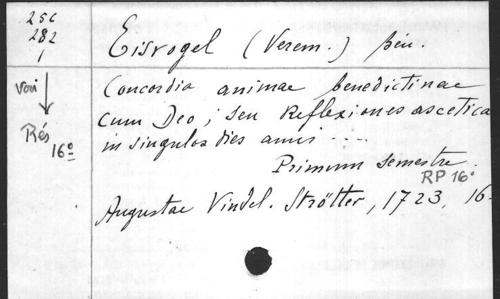 256
282
1
Eisvogel (Verem.) bén.
Voir
Rés
16º
Concordia animae benedictinae
cum Deo ; seu Reflexiones ascetica
in singulos dies anni ....
Primum semestre.
RP 16º
Augustae Vindel. Strötter, 1723, 16-